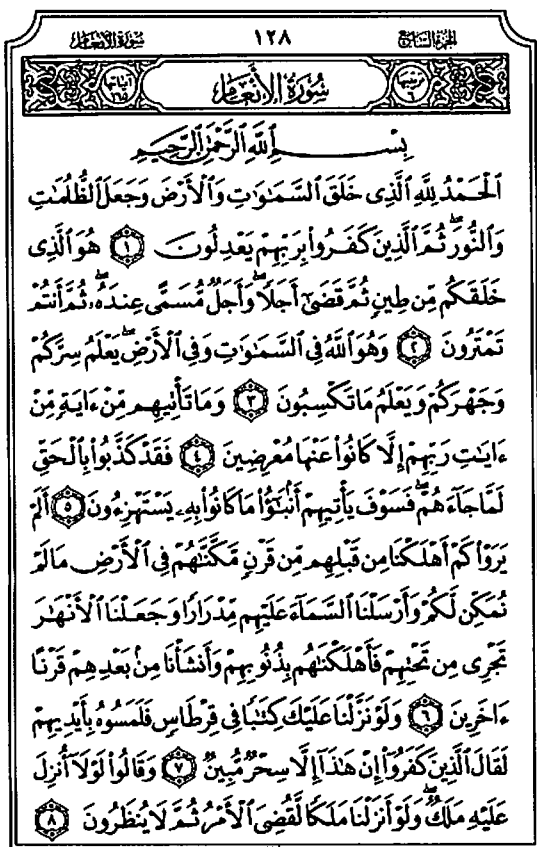 الجزء السابع ١٢٨ سورة الأنعام
ترتيبها ٦ سُورَةُ الأَنْعَامِ آياتها ١٦٥
بِسْمِ اللَّهِ الرَّحْمَٰنِ الرَّحِيمِ
الْحَمْدُ لِلَّهِ الَّذِي خَلَقَ السَّمَاوَاتِ وَالْأَرْضَ وَجَعَلَ الظُّلُمَاتِ
وَالنُّورَ ۖ ثُمَّ الَّذِينَ كَفَرُوا بِرَبِّهِمْ يَعْدِلُونَ ۝١ هُوَ الَّذِي
خَلَقَكُم مِّن طِينٍ ثُمَّ قَضَىٰ أَجَلًا ۖ وَأَجَلٌ مُّسَمًّى عِندَهُ ۖ ثُمَّ أَنتُمْ
تَمْتَرُونَ ۝٢ وَهُوَ اللَّهُ فِي السَّمَاوَاتِ وَفِي الْأَرْضِ ۖ يَعْلَمُ سِرَّكُمْ
وَجَهْرَكُمْ وَيَعْلَمُ مَا تَكْسِبُونَ ۝٣ وَمَا تَأْتِيهِم مِّنْ ءَايَةٍ مِّنْ
ءَايَٰتِ رَبِّهِمْ إِلَّا كَانُوا عَنْهَا مُعْرِضِينَ ۝٤ فَقَدْ كَذَّبُوا بِالْحَقِّ
لَمَّا جَآءَهُمْ ۖ فَسَوْفَ يَأْتِيهِمْ أَنۢبَٰٓؤُا مَا كَانُوا بِهِۦ يَسْتَهْزِءُونَ ۝٥ أَلَمْ
يَرَوْا كَمْ أَهْلَكْنَا مِن قَبْلِهِم مِّن قَرْنٍ مَّكَّنَّٰهُمْ فِي الْأَرْضِ مَا لَمْ
نُمَكِّن لَّكُمْ وَأَرْسَلْنَا السَّمَآءَ عَلَيْهِم مِّدْرَارًا وَجَعَلْنَا الْأَنْهَٰرَ
تَجْرِي مِن تَحْتِهِمْ فَأَهْلَكْنَٰهُم بِذُنُوبِهِمْ وَأَنشَأْنَا مِنۢ بَعْدِهِمْ قَرْنًا
ءَاخَرِينَ ۝٦ وَلَوْ نَزَّلْنَا عَلَيْكَ كِتَٰبًا فِي قِرْطَاسٍ فَلَمَسُوهُ بِأَيْدِيهِمْ
لَقَالَ الَّذِينَ كَفَرُوٓا إِنْ هَٰذَآ إِلَّا سِحْرٌ مُّبِينٌ ۝٧ وَقَالُوا لَوْلَآ أُنزِلَ
عَلَيْهِ مَلَكٌ ۖ وَلَوْ أَنزَلْنَا مَلَكًا لَّقُضِيَ الْأَمْرُ ثُمَّ لَا يُنظَرُونَ ۝٨